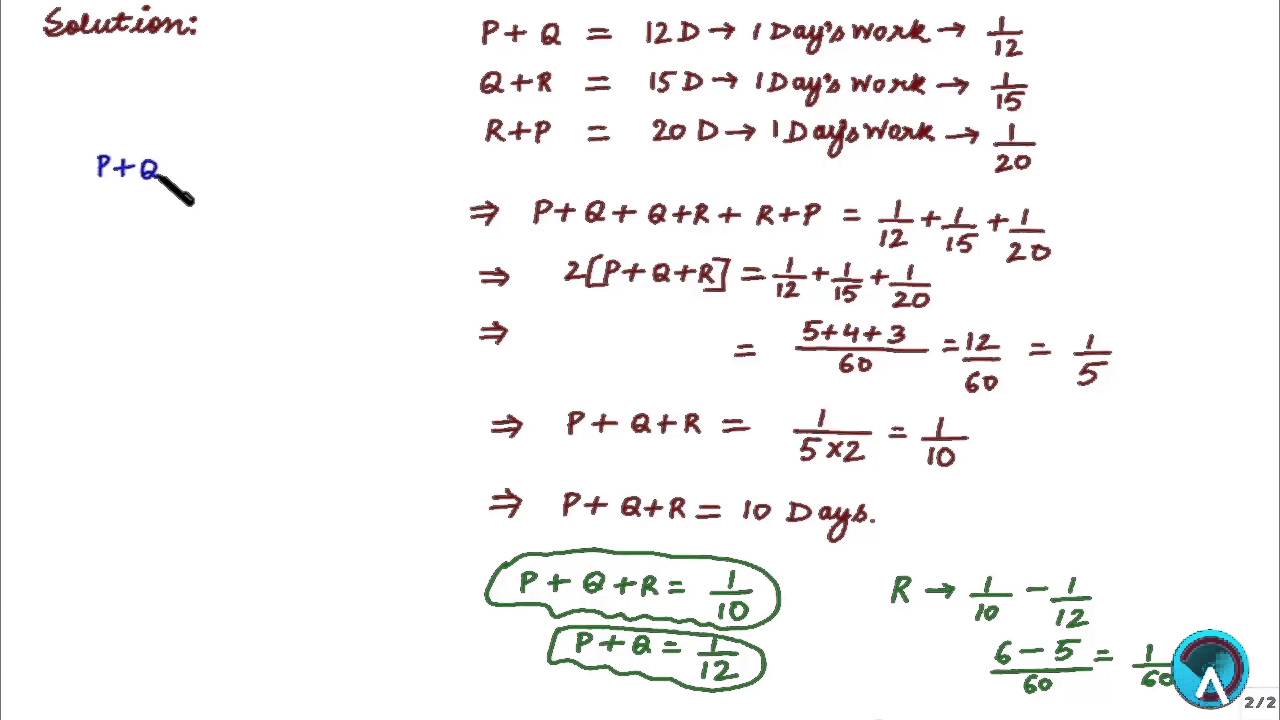 Solution:
P + Q = 12 D → 1 Day's work → 1/12
Q + R = 15 D → 1 Day's work → 1/15
R + P = 20 D → 1 Day's work → 1/20
P + Q
⇒ P + Q + Q + R + R + P = 1/12 + 1/15 + 1/20
⇒ 2[P + Q + R] = 1/12 + 1/15 + 1/20
⇒ = 5 + 4 + 3/60 = 12/60 = 1/5
⇒ P + Q + R = 1/5 × 2 = 1/10
⇒ P + Q + R = 10 Days.
P + Q + R = 1/10
P + Q = 1/12
R → 1/10 - 1/12
6 - 5/60 = 1/60
2/2